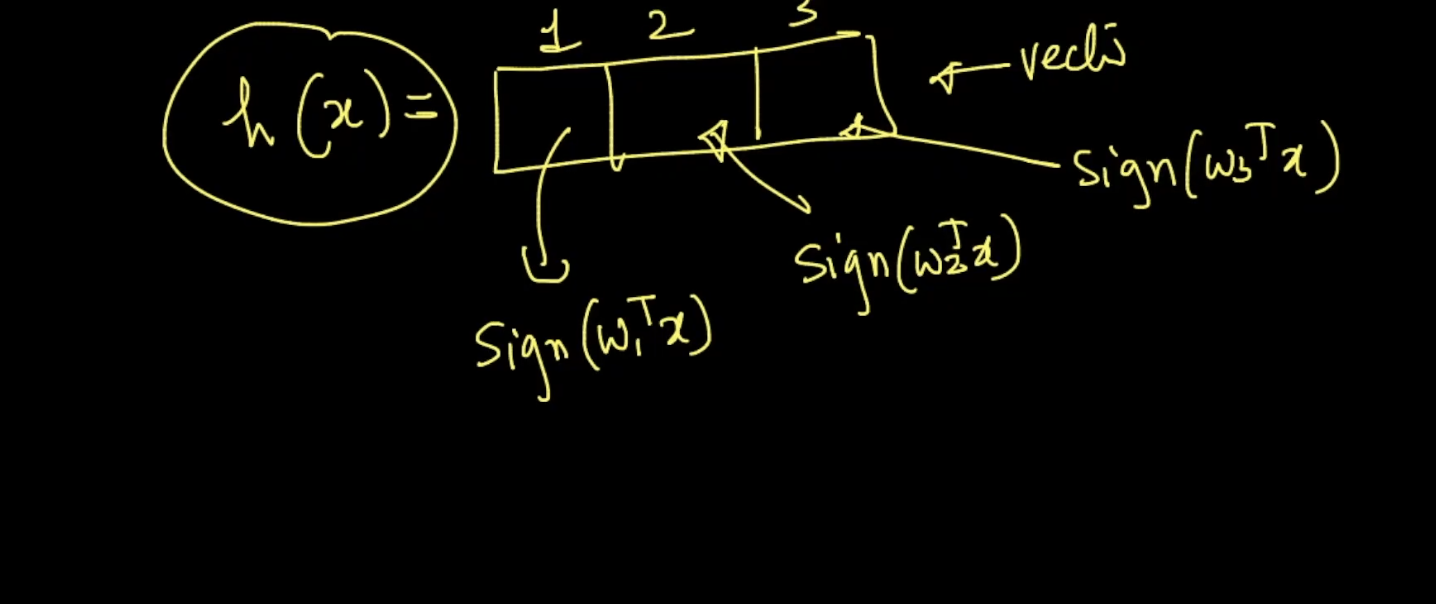 1 2 3
h(x) =
← vecto
sign(w₃ᵀx)
sign(w₂ᵀx)
sign(w₁ᵀx)